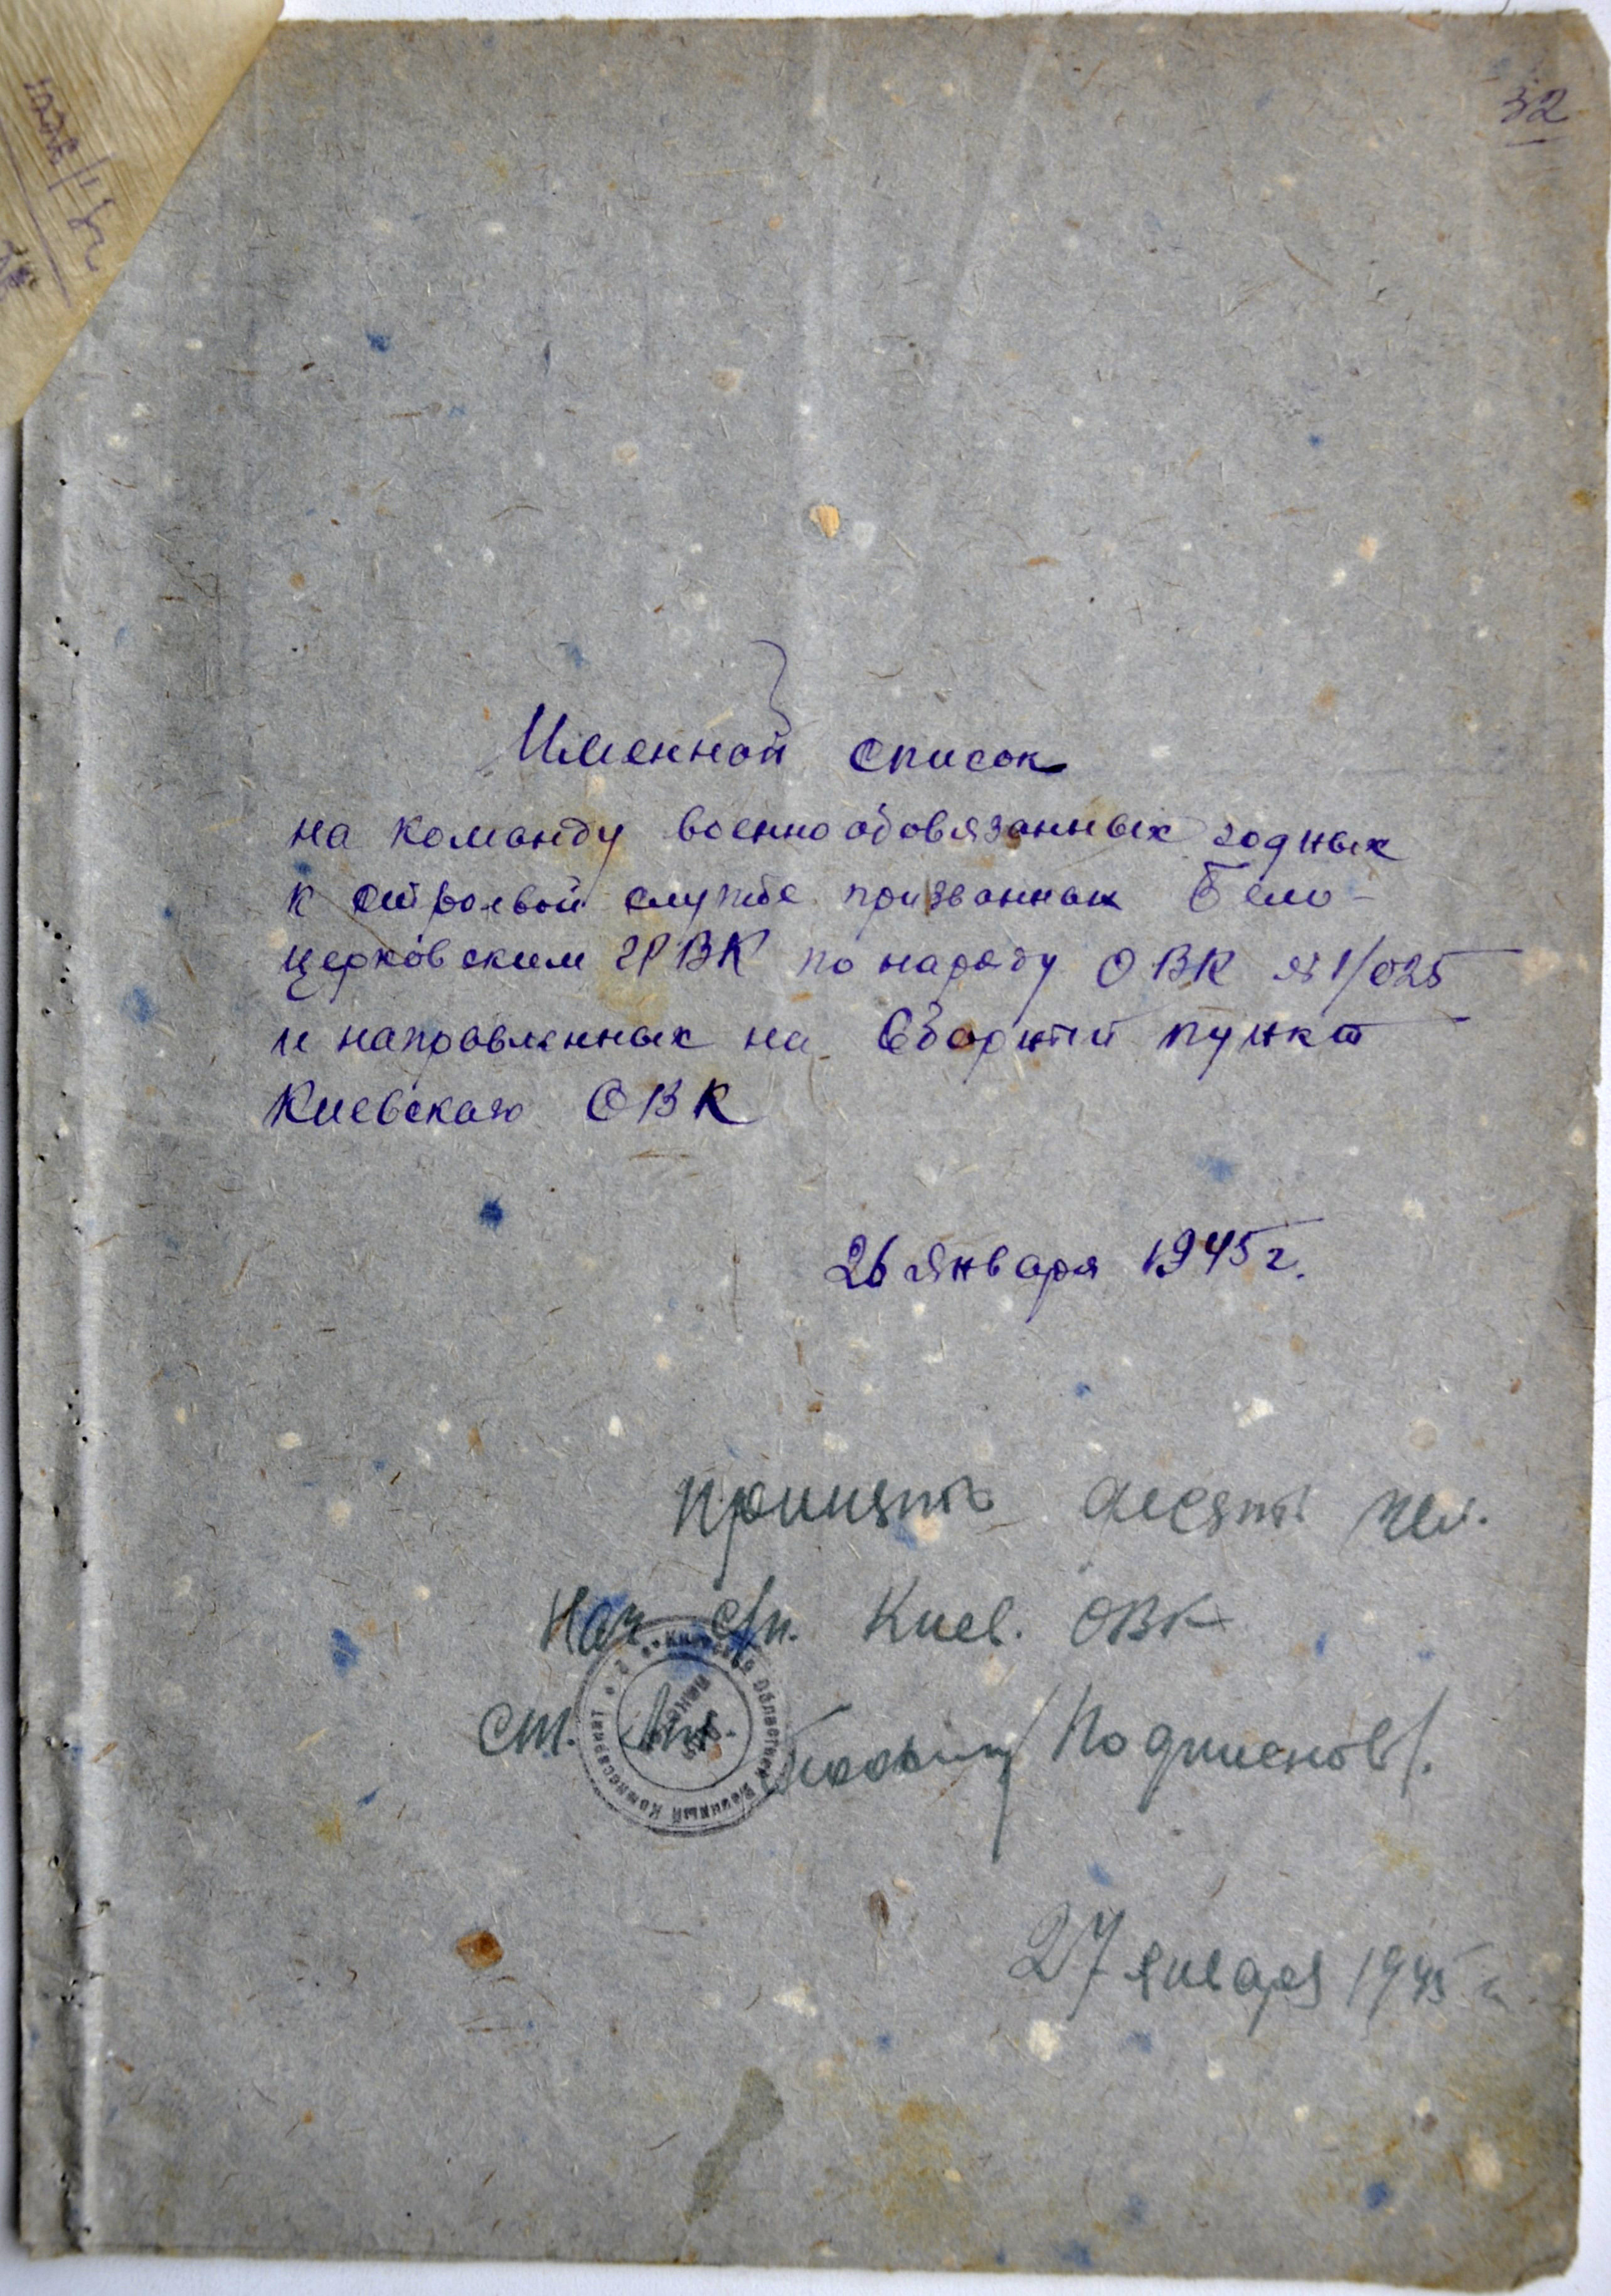 32
Именной список
на команду военнообовязанных годных
к строевой службе призванных Бело-
церковским ГРВК по наряду ОВК № 1/025
и направленных на Сборный пункт
Киевского ОВК
26 января 1945 г.
Принять десять чел.
Нач. с/п. Киев. ОВК
ст. л-т /Подшиенов/.
27 января 1945 г.
Областной Военный Комиссариат